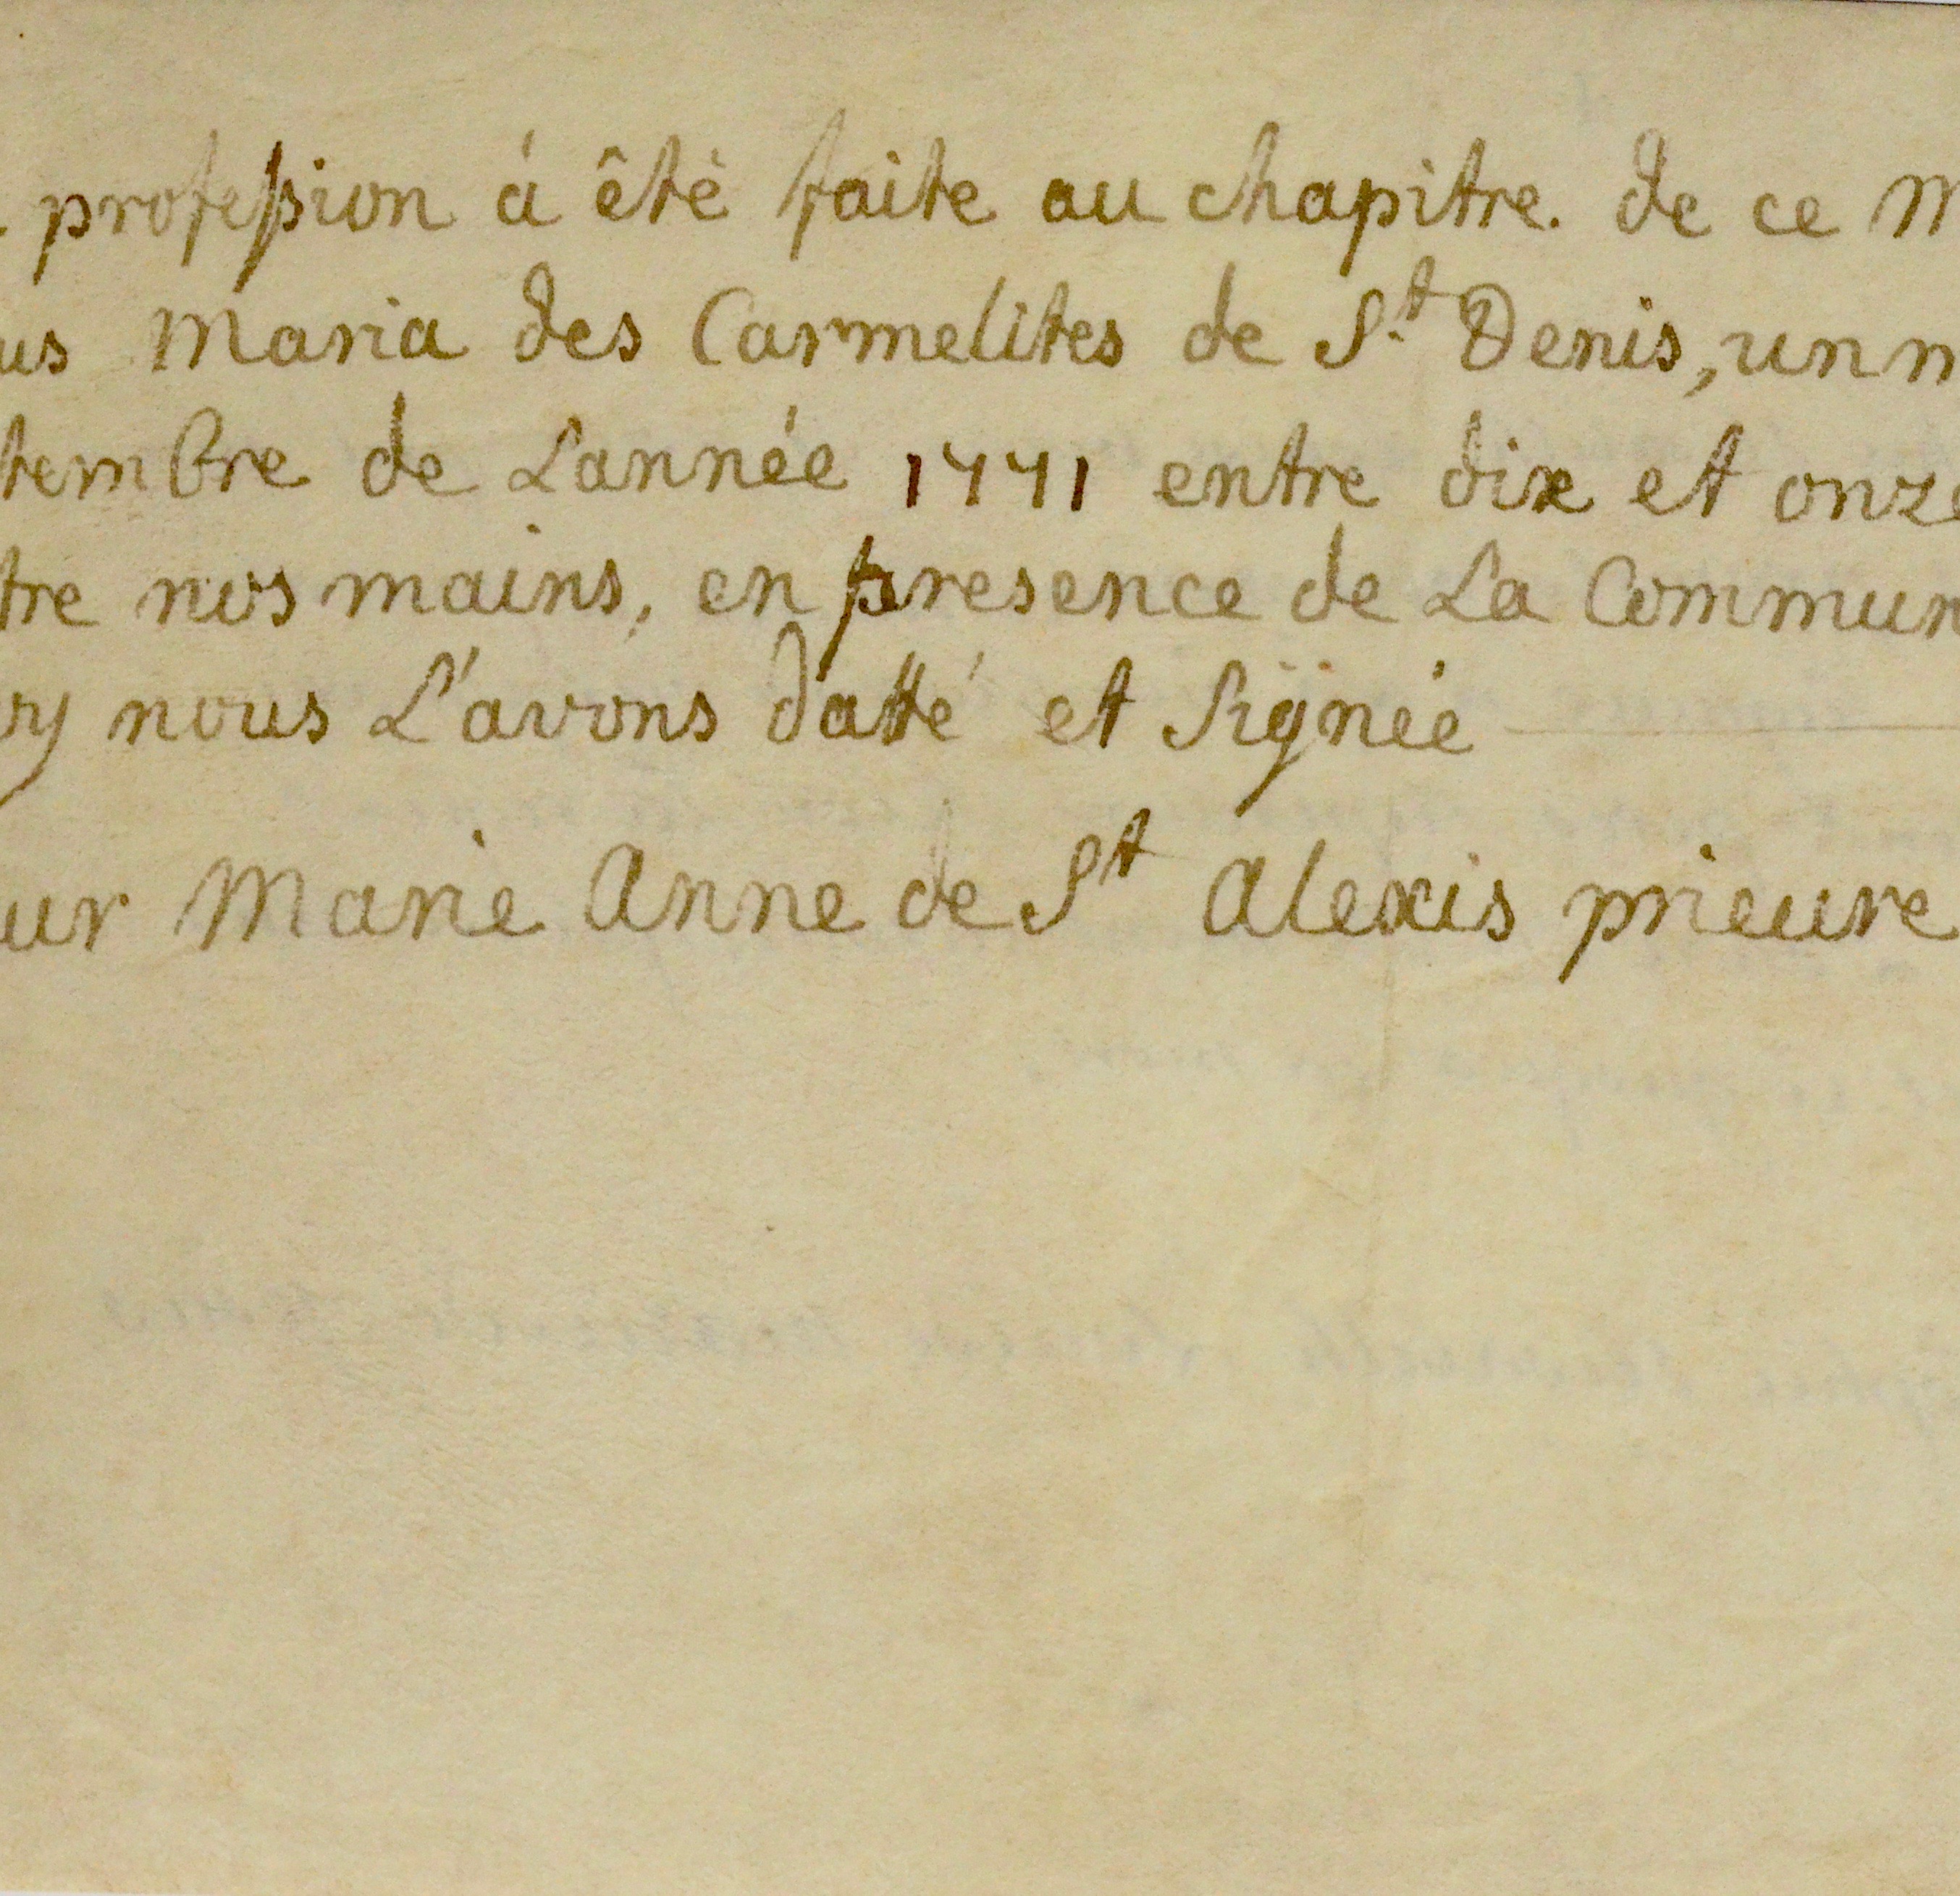 profession à été faite au chapitre. de ce M
us Maria des Carmelites de St Denis, un m
tembre de L'année 1771 entre dix et onze
tre nos mains, en presence de La Commun
oy nous L'avons datté et signée
ur Marie Anne de St Alexis prieure